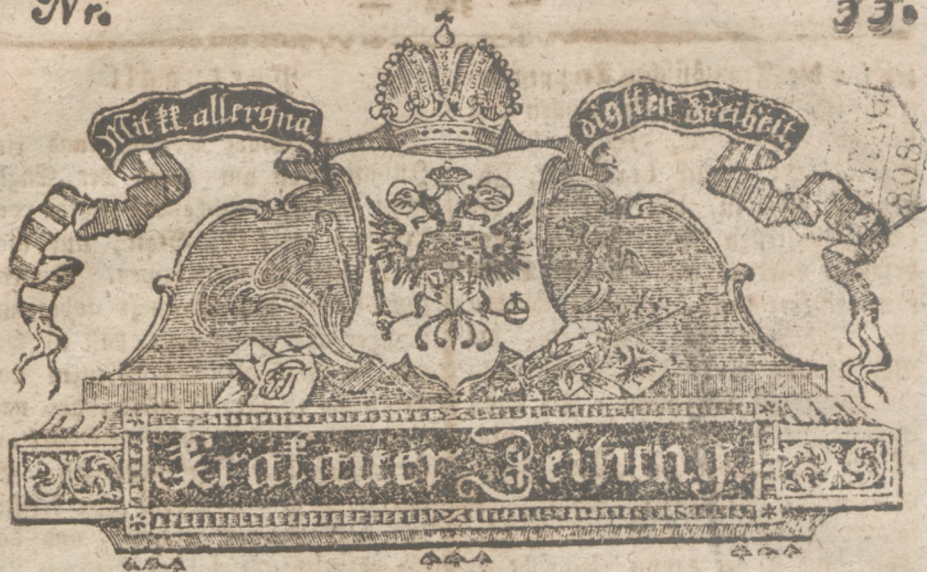 Nr. 33.
Mit kk. allergnädigsten Freiheit
Krakauer Zeitung.